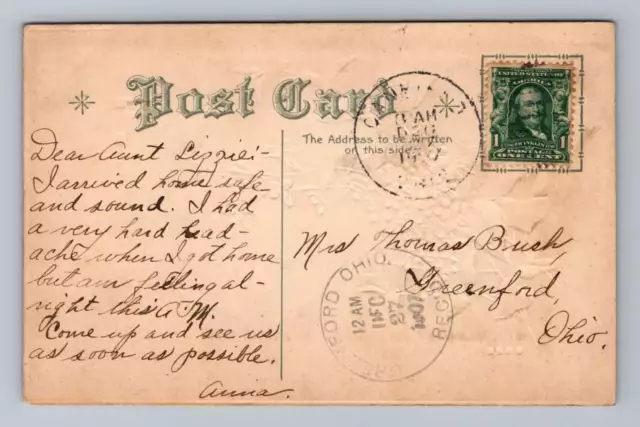 Post Card
The Address to be written
on this side.
Dear Aunt Lizzie:-
I arrived home safe
and sound. I had
a very hard head-
ache when I got home
but am feeling al-
right this A.M.
Come up and see us
as soon as possible.
Anna.
Mrs Thomas Bush,
Greenford,
Ohio.
AM
DEC
UNITED STATES OF
AMERICA
1
1
POSTAGE
ONE CENT
OHIO.
12 AM
DEC
27
1907
REC'D